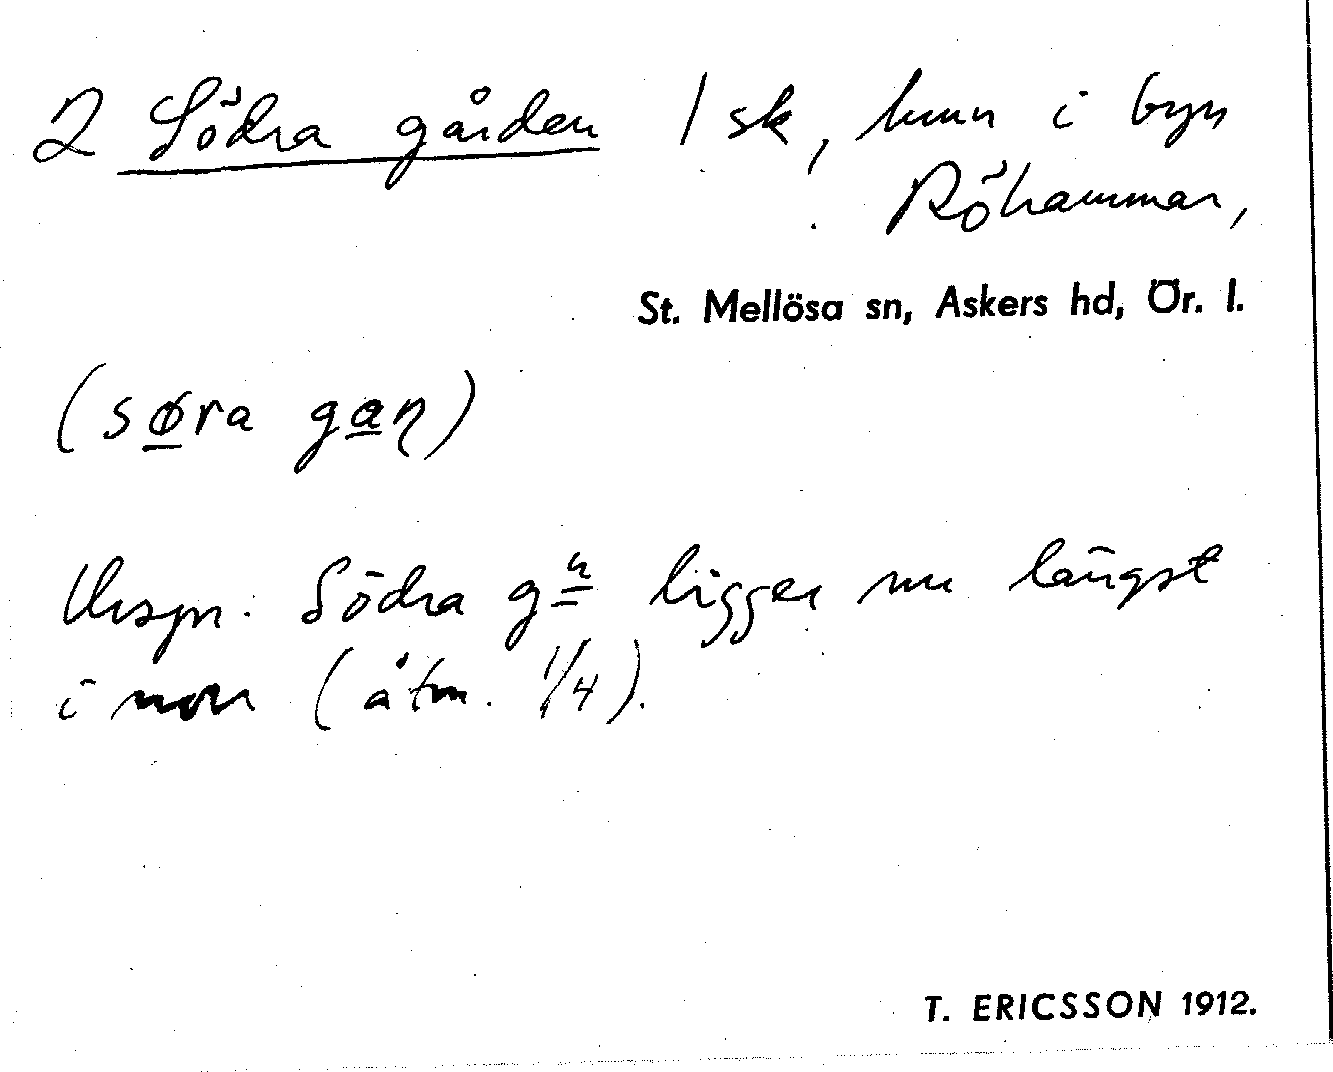 2 Södra gården 1 sk, hmn i byn
Röhammar,
St. Mellösa sn, Askers hd, Ör. l.
(søra gaṇ)
Urspr. Södra gn ligger nu längst
i norr (åtm. 1/4).
T. ERICSSON 1912.